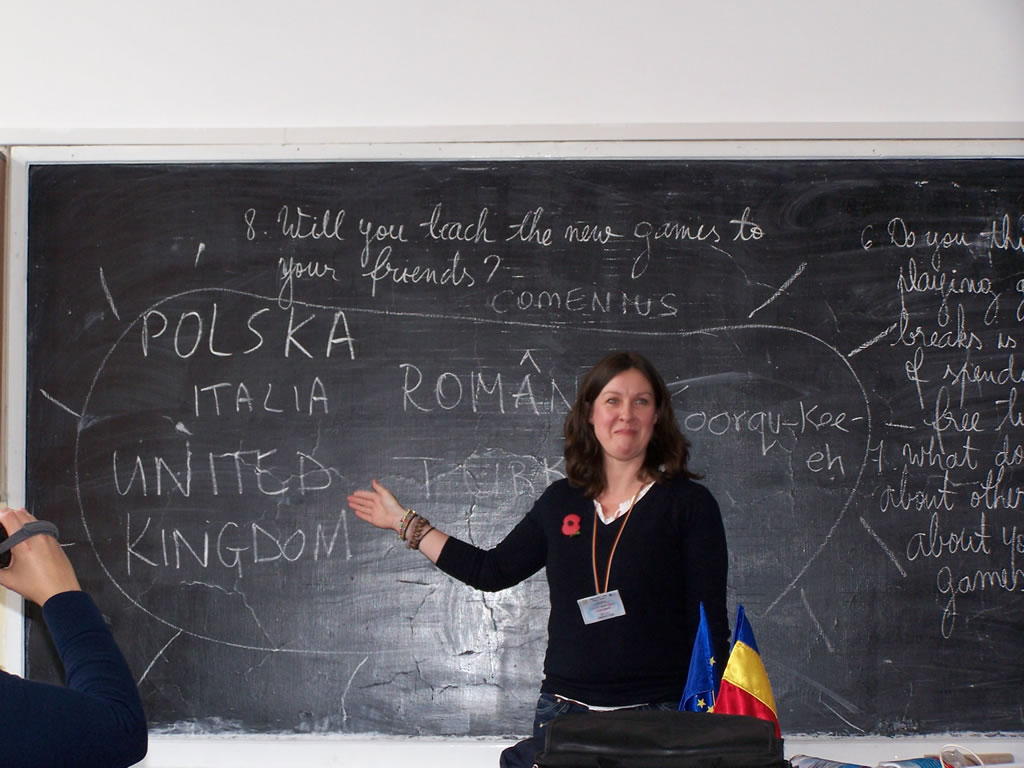 8. Will you teach the new games to
your friends?
COMENIUS
POLSKA
ITALIA
ROMÂN
UNITED
KINGDOM
TURK
oorqu-Kee-
eh
6 Do you thi
playing g
breaks is
of spend
free ti
7. what do
about other
about yo
games